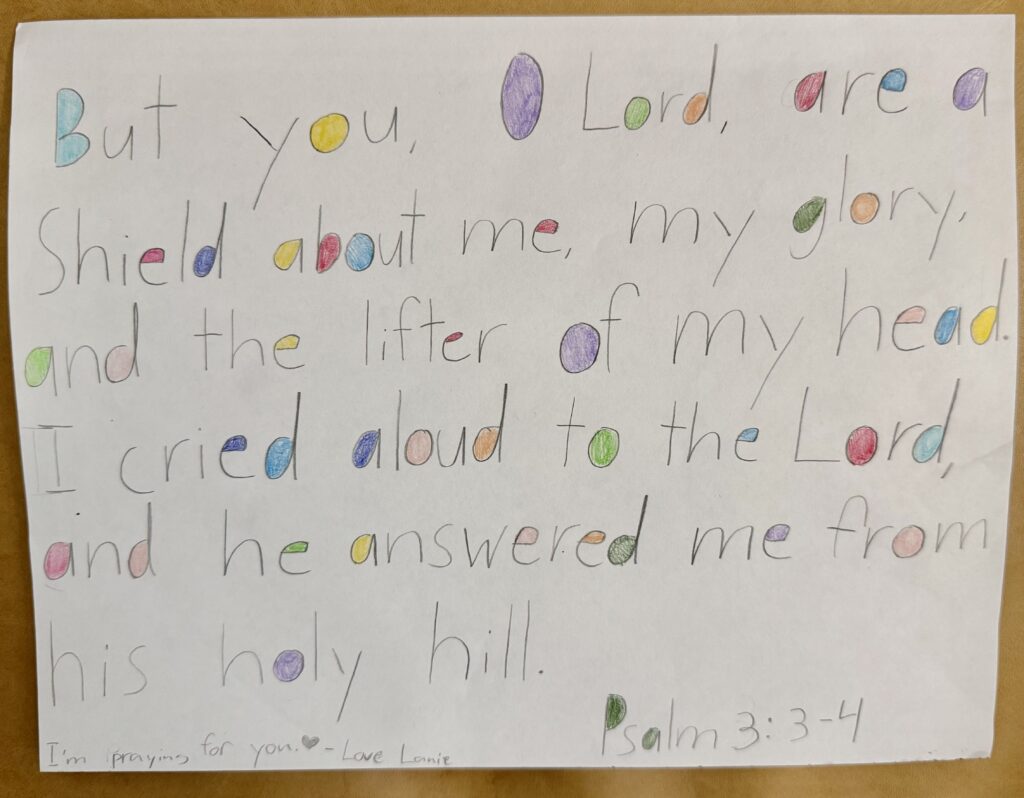 But you, O Lord, are a
Shield about me, my glory,
and the lifter of my head.
I cried aloud to the Lord,
and he answered me from
his holy hill.
Psalm 3:3-4
I'm praying for you.♥ - Love Lanie